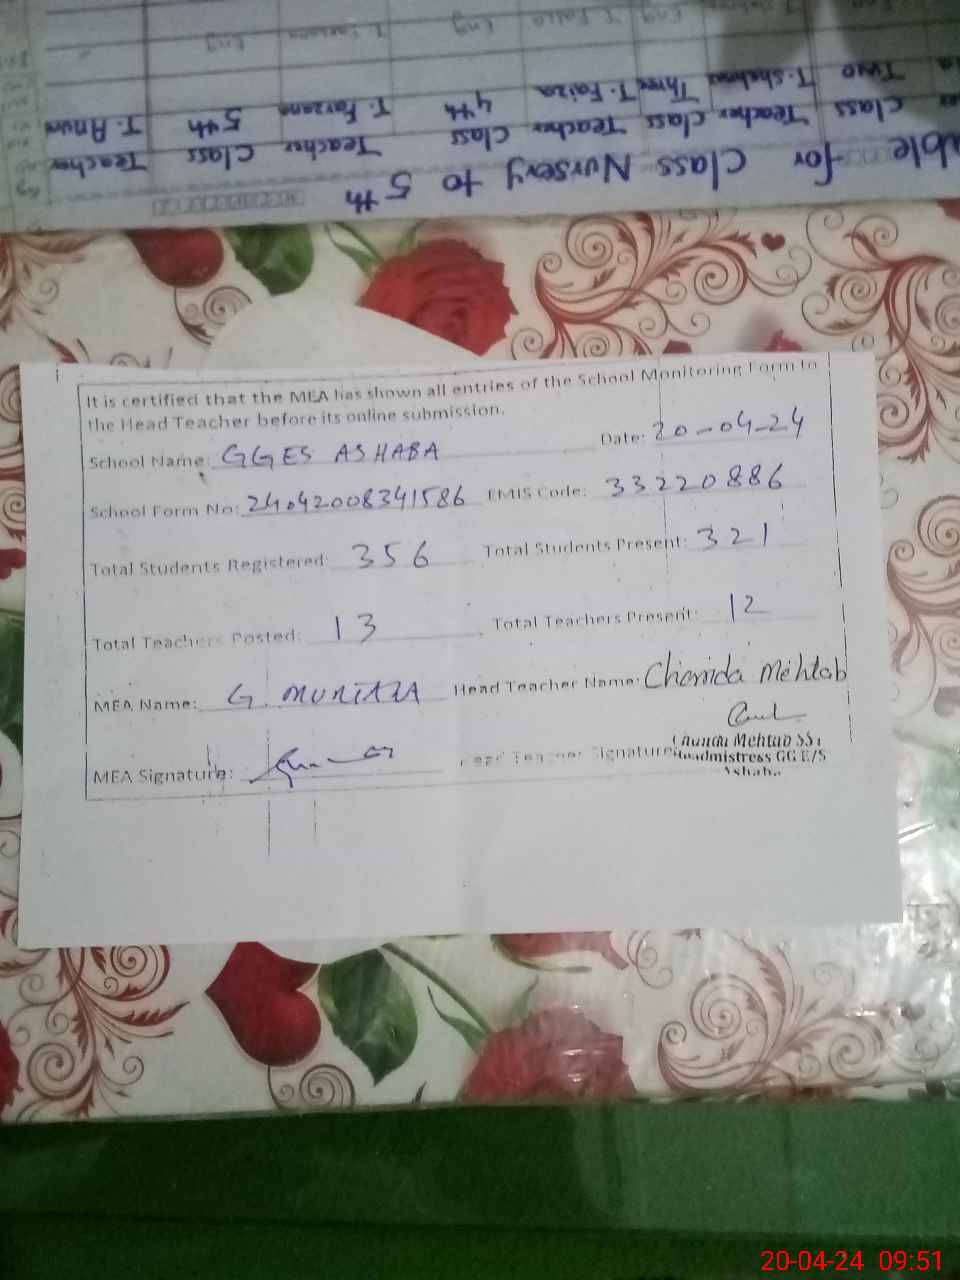 able for Class Nursery to 5th
Class Teacher Class Teacher Class Teacher Class Teacher
Two T. Shehnaz Three T. Faiza 4th T. Farzana 5th T. Anum
Eng T. Faiza Eng T. Farzana Eng
It is certified that the MEA has shown all entries of the School Monitoring Form to
the Head Teacher before its online submission.
School Name: GGES ASHABA Date: 20-04-24
School Form No: 24042008341586 EMIS Code: 33220886
Total Students Registered: 356 Total Students Present: 321
Total Teachers Posted: 13 Total Teachers Present: 12
MEA Name: G. MURTAZA Head Teacher Name: Chanda Mehtab
MEA Signature: Head Teacher Signature:
Mehtab SST
Headmistress GG E/S
Ashaba
20-04-24 09:51